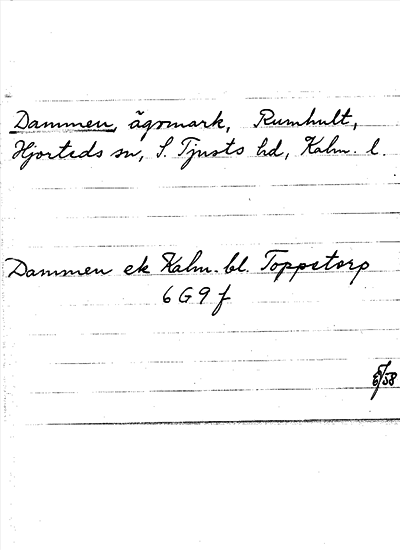 Dammen, ägomark, Rumhult,
Hjorteds sn, S. Tjusts hd, Kalm. l.
Dammen ek Kalm. bl. Toppstorp
6 G 9 f